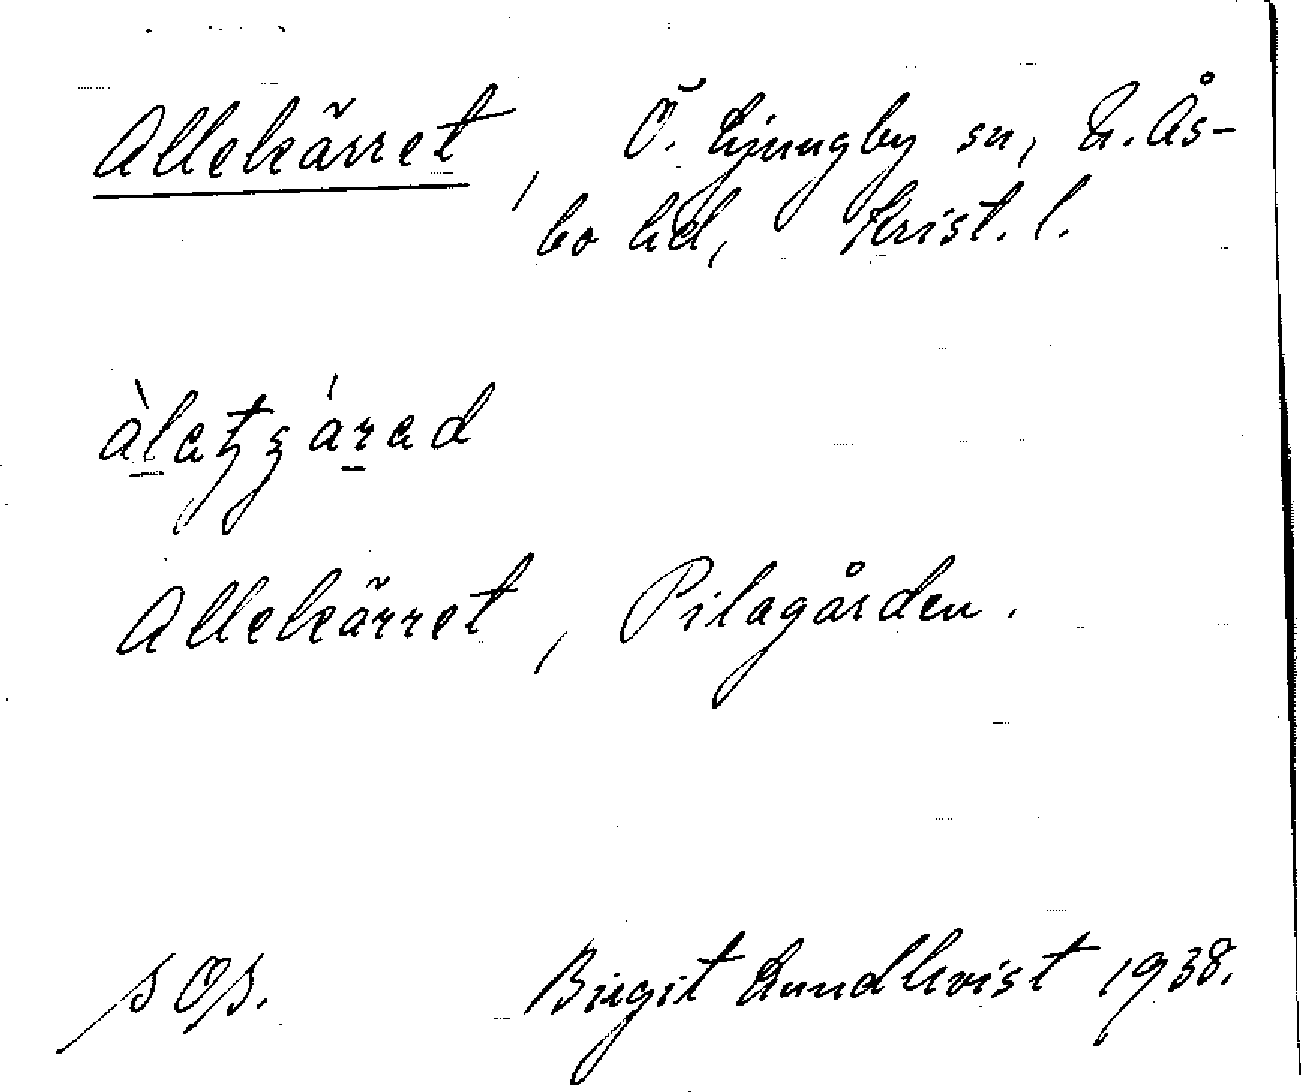 Allekärret, Ö. Ljungby sn, N. Ås-
bo hd, Krist. l.
Allekärret, Pilagården.
Birgit Lundkvist 1938.